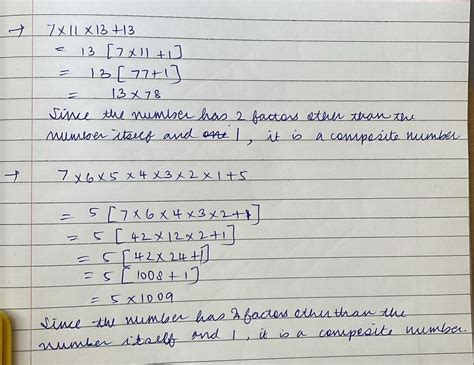 → 7×11×13+13
= 13 [7×11+1]
= 13 [77+1]
= 13×78
Since the number has 2 factors other than the
number itself and one 1, it is a composite number
→ 7×6×5×4×3×2×1+5
= 5 [7×6×4×3×2+1]
= 5 [42×12×2+1]
= 5 [42×24+1]
= 5 [1008+1]
= 5×1009
Since the number has 2 factors other than the
number itself and 1, it is a composite number.